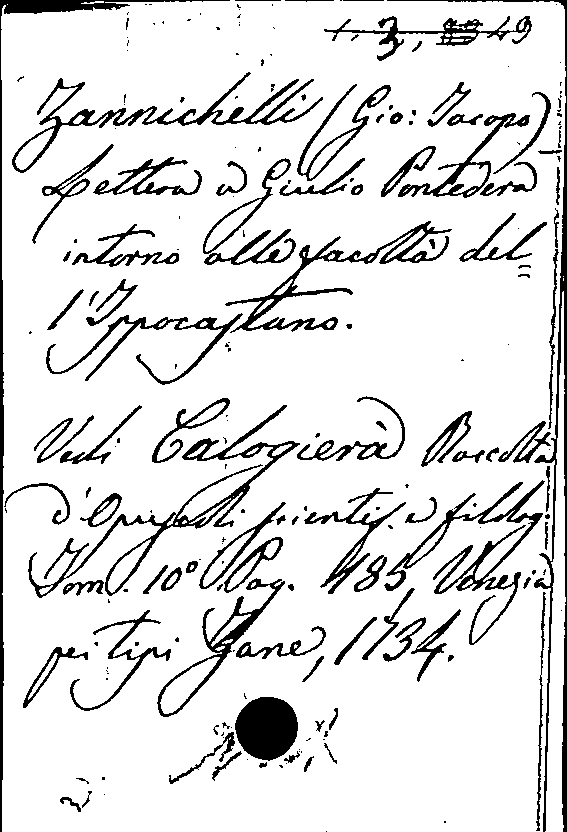 1. 3, 49
Zannichelli (Gio: Jacopo)
Lettera a Giulio Pontedera
intorno alle facoltà del=
l'Ippocastano.
Vedi Calogierà Raccolta
d'Opuscoli scientif. e filolog.
Tom. 10° Pag. 485, Venezia
pei tipi Zane, 1734.